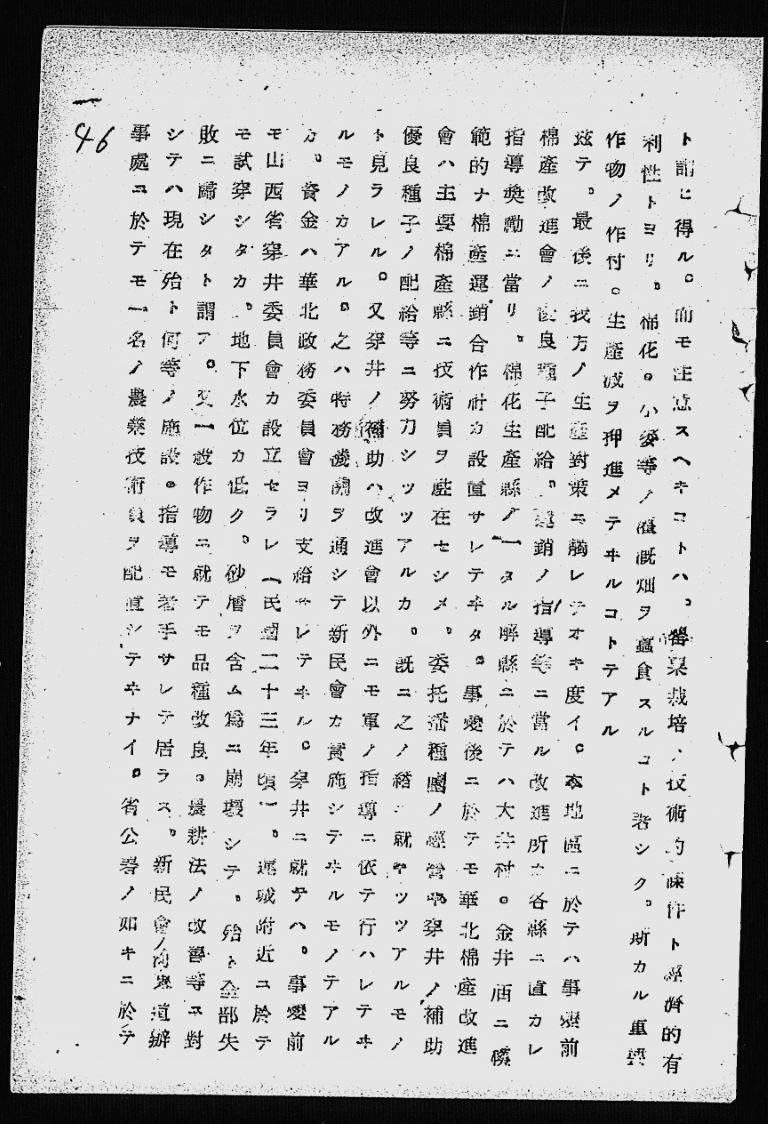 ト謂ヒ得ル。而モ注意スヘキコトハ。罌粟栽培ノ技術的操作ト經濟的有
利性トヨリ。棉花。小麥等ノ灌漑畑ヲ蠶食スルコト著シク。斯カル重要
作物ノ作付。生產減ヲ押進メテヰルコトテアル
玆テ。最後ニ我方ノ生產對策ニ觸レテオキ度イ。本地區ニ於テハ事變前
棉產改進會ノ優良種子配給。運銷ノ指導等ニ當ル改進所カ各縣ニ置カレ
指導奬勵ニ當リ。棉花生產縣ノ一タル解縣ニ於テハ大井村。金井庙ニ模
範的ナ棉產運銷合作社カ設置サレテヰタ。事變後ニ於テモ華北棉產改進
會ハ主要棉產縣ニ技術員ヲ駐在セシメ。委托播種團ノ經營中穿井ノ補助
優良種子ノ配給等ニ努力シツツアルカ。既ニ之ノ緖ニ就キツツアルモノ
ト見ラレル。又穿井ノ補助ハ改進會以外ニモ軍ノ指導ニ依テ行ハレテヰ
ルモノカアル。之ハ特務機關ヲ通シテ新民會カ實施シテヰルモノテアル
カ。資金ハ華北政務委員會ヨリ支給サレテヰル。穿井ニ就テハ。事變前
モ山西省穿井委員會カ設立セラレ(民國二十三年頃)。運城附近ニ於テ
モ試穿シタカ。地下水位カ低ク。砂層ヲ含ム爲ニ崩壞シテ。殆ト全部失
敗ニ歸シタト謂フ。又一般作物ニ就テモ品種改良。農耕法ノ改善等ニ對
シテハ現在殆ト何等ノ施設。指導モ着手サレテ居ラス。新民會ノ河東道辦
事處ニ於テモ一名ノ農業技術員ヲ配置シテヰナイ。省公署ノ如キニ於テ
46